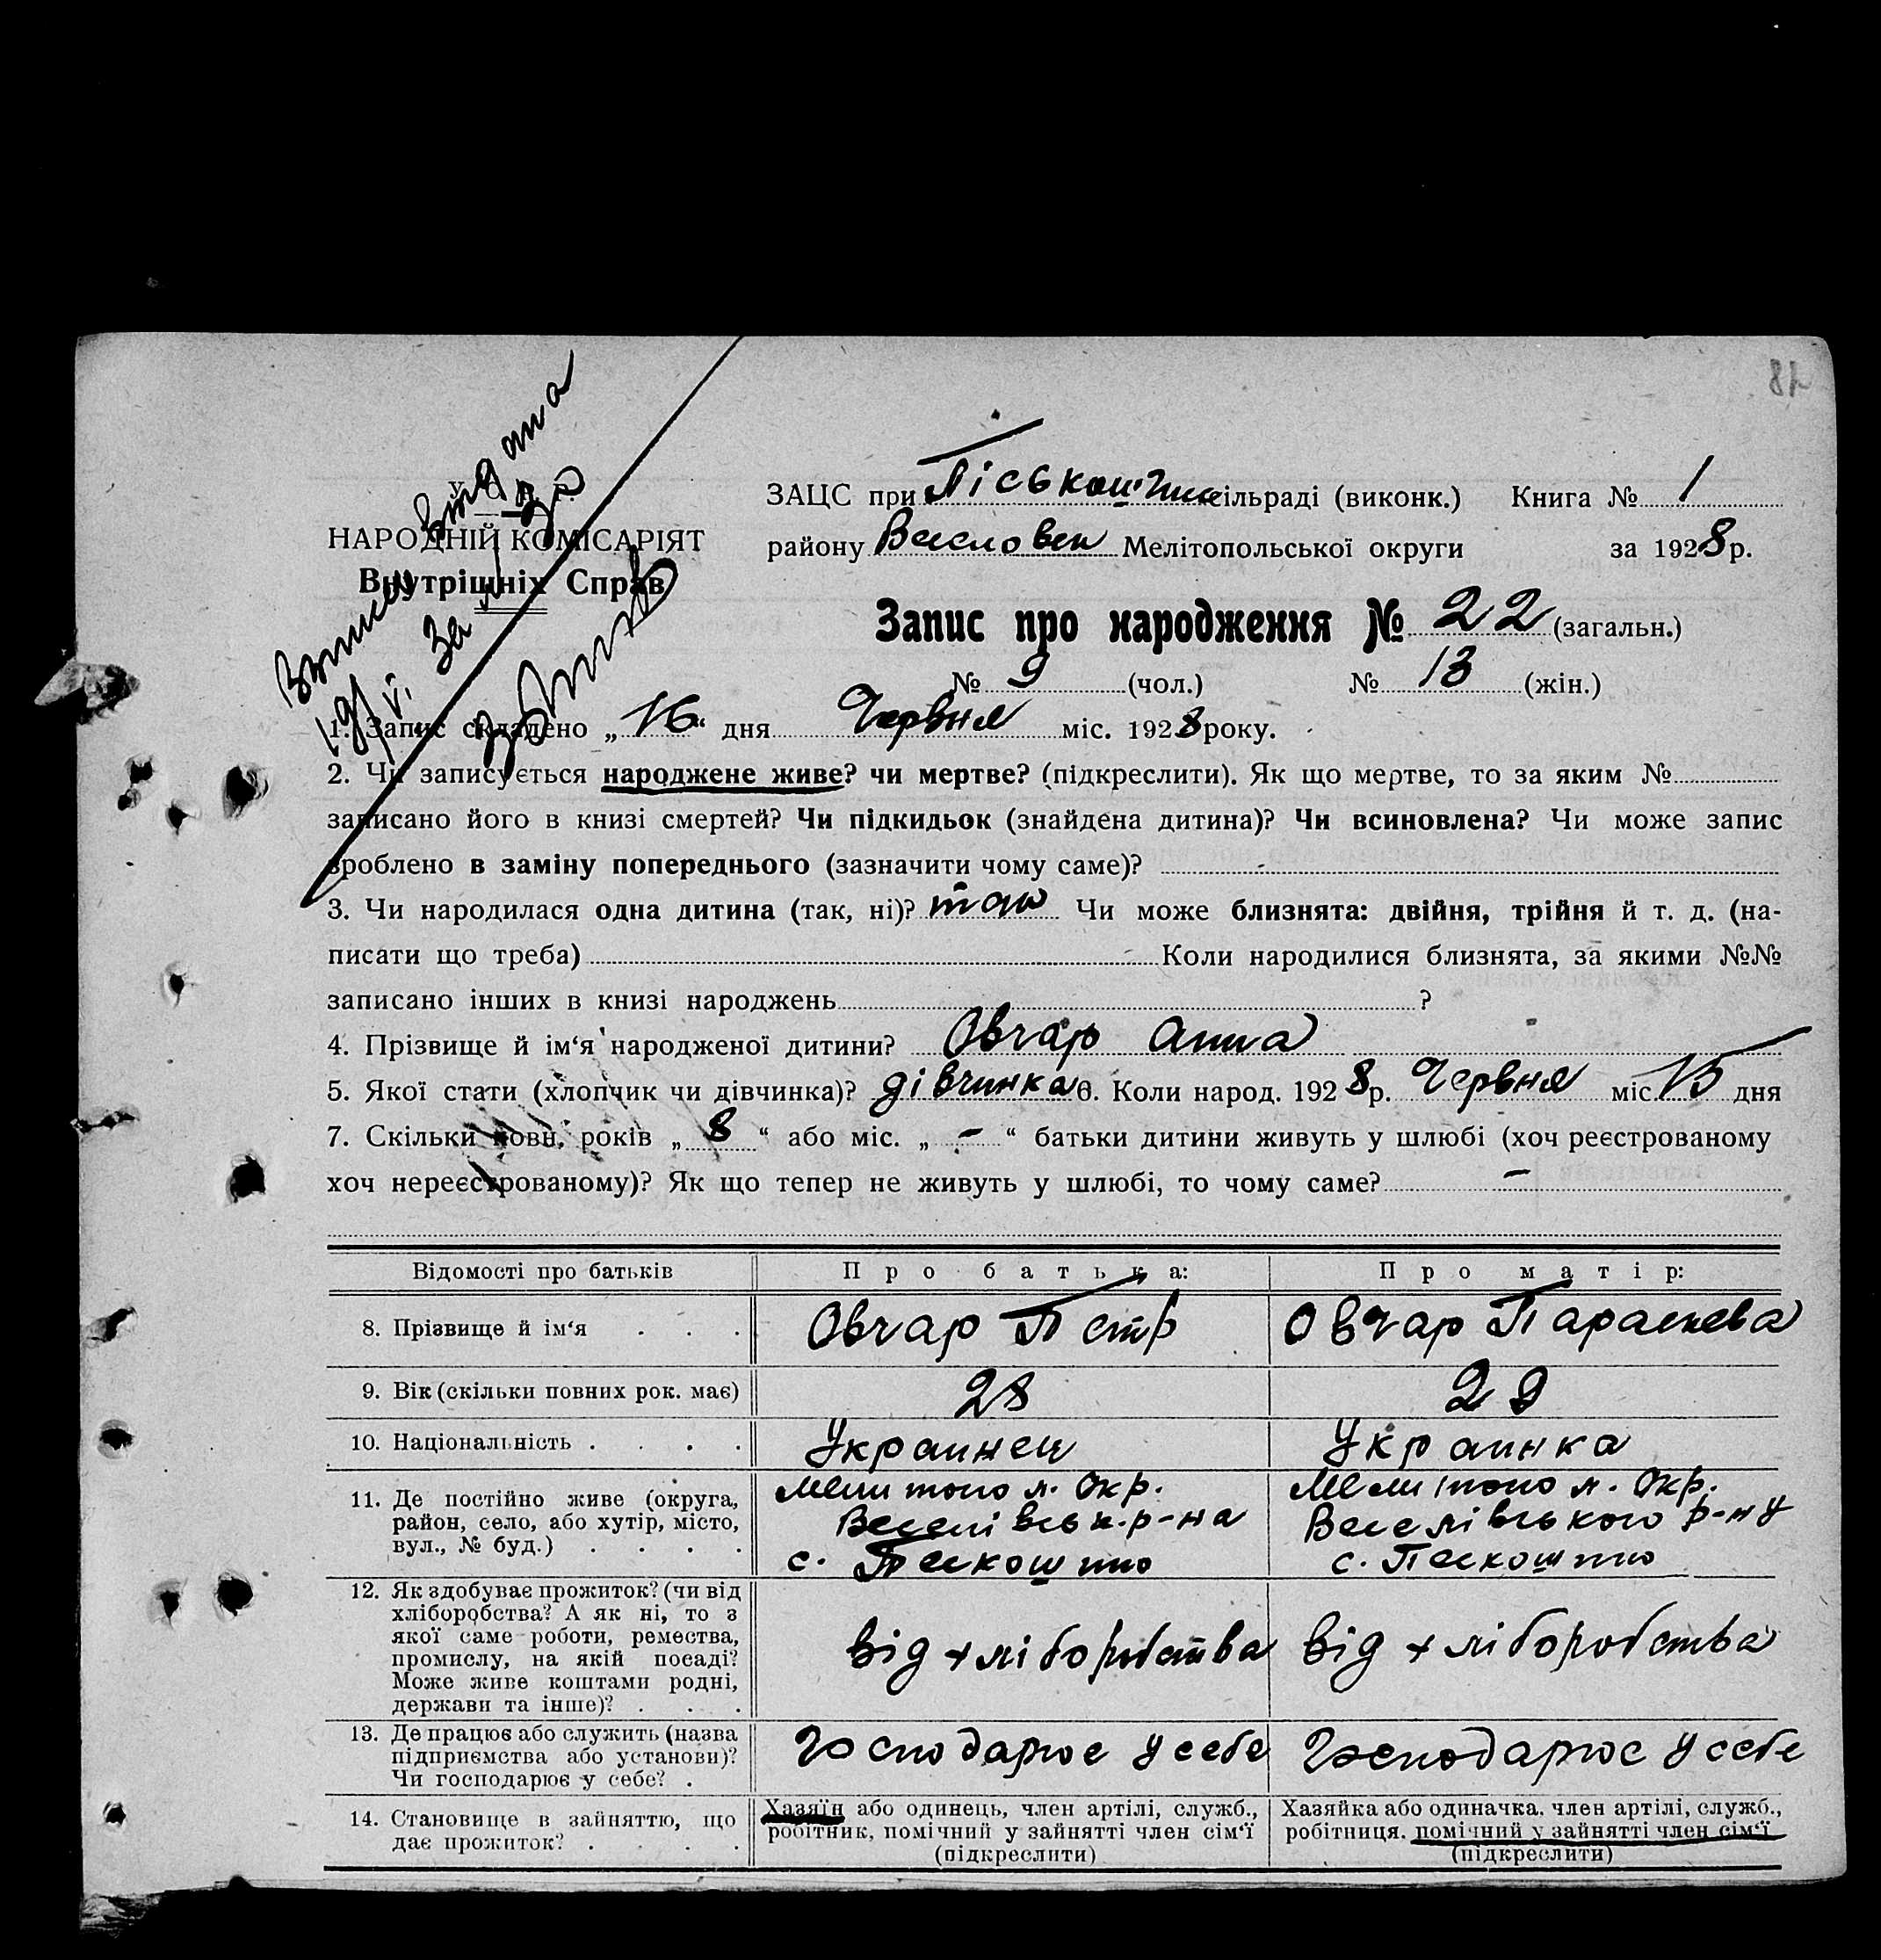 48
Виписка видана
У С Р Р
НАРОДНІЙ КОМІСАРІЯТ
Внутрішніх Справ
за
ЗАЦС при Піськошин сільраді (виконк.) Книга № 1
району Веселовск Мелітопольської округи за 1928 р.
Запис про народження № 22 (загальн.)
№ 9 (чол.) № 13 (жін.)
1. Запис складено „16“ дня Червня міс. 1928 року.
2. Чи записується народжене живе? чи мертве? (підкреслити). Як що мертве, то за яким №
записано його в книзі смертей? Чи підкидьок (знайдена дитина)? Чи всиновлена? Чи може запис
зроблено в заміну попереднього (зазначити чому саме)?
3. Чи народилася одна дитина (так, ні)? так Чи може близнята: двійня, трійня й т. д. (на-
писати що треба) Коли народилися близнята, за якими №№
записано інших в книзі народжень ?
4. Прізвище й ім‘я народженої дитини? Овчар Анна
5. Якої стати (хлопчик чи дівчинка)? дівчинка 6. Коли народ. 1928 р. Червня міс. 15 дня
7. Скільки повн. років „8“ або міс. „-“ батьки дитини живуть у шлюбі (хоч реєстрованому
хоч нереєстрованому)? Як що тепер не живуть у шлюбі, то чому саме? -
Відомості про батьків Про батька: Про матір:
8. Прізвище й ім‘я . . . Овчар Петр Овчар Параскева
9. Вік (скільки повних рок. має) 28 29
10. Національність . . . . Украинец Украинка
11. Де постійно живе (округа, район, село, або хутір, місто, вул., № буд.) . . . . Мелитопол. Окр. Веселівськ. р-на с. Пескошино Мелитопол. Окр. Веселівського р-ну с. Пескошино
12. Як здобуває прожиток? (чи від хліборобства? А як ні, то з якої саме роботи, ремества, промислу, на якій посаді? Може живе коштами родні, держави та інше)? . . . від хліборобства від хліборобства
13. Де працює або служить (назва підприємства або установи)? Чи господарює у себе? . Господарює у себе Господарює у себе
14. Становище в зайняттю, що дає прожиток? . . . . Хазяїн або одинець, член артілі, служб., робітник, помічний у зайнятті член сім‘ї (підкреслити) Хазяйка або одиначка, член артілі, служб., робітниця, помічний у зайнятті член сім‘ї (підкреслити)